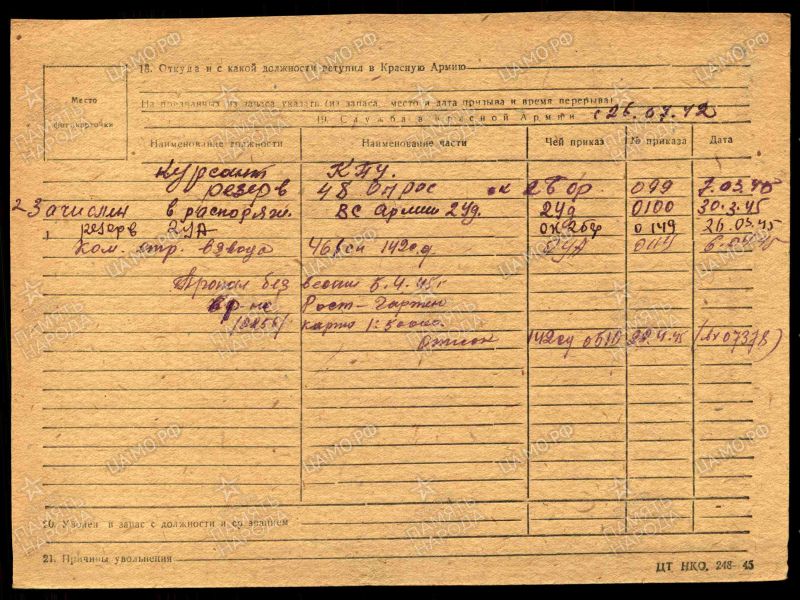 18. Откуда и с какой должности вступил в Красную Армию
Место
фотокарточки
На призванных из запаса указать (из запаса, место и дата призыва и время перерыва)
19. Служба в Красной Армии с 26.07.42
Наименование должности Наименование части Чей приказ № приказа Дата
Курсант КПУ.
резерв 48 опрос ок 2бф 099 7.03.45
Зачислен в распоряж. ВС Армии 2Уд. 2Уд 0100 30.3.45
резерв 2УА ок 2бф 0149 26.03.45
Ком. стр. взвода 46 142 с.д. 2УА 044
Пропал без вести 6.4.45г
в р-не Рост-Гартен
карта 1:50000.
142сд 0510
20. Уволен в запас с должности и со званием
21. Причины увольнения
ЦТ НКО. 248-45
ПАМЯТЬ НАРОДА
ЦАМО.РФ